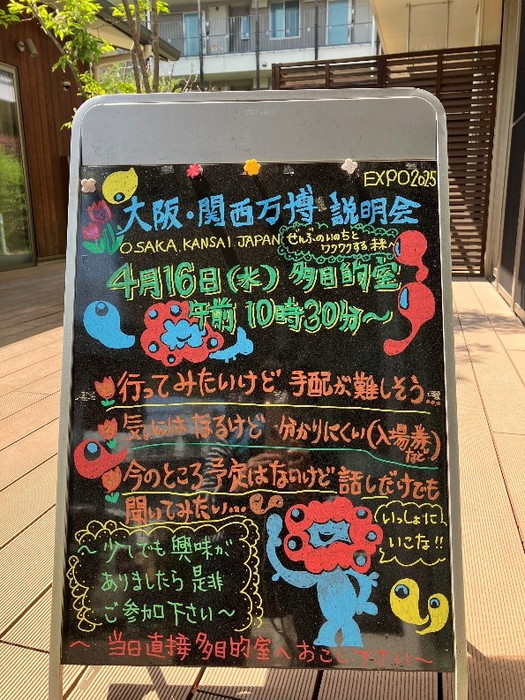 EXPO2025
大阪・関西万博 説明会
OSAKA, KANSAI, JAPAN
ぜんぶのいのちと
ワクワクする
4月16日(水) 多目的室
午前 10時30分～
行ってみたいけど 手配が難しそう…
気にはなるけど 分かりにくい(入場券など)
今のところ予定はないけど 話しだけでも
聞いてみたい…
いっしょに
いこな!!
～少しでも興味が
ありましたら是非
ご参加下さい～
～ 当日直接多目的室へおこし下さい～